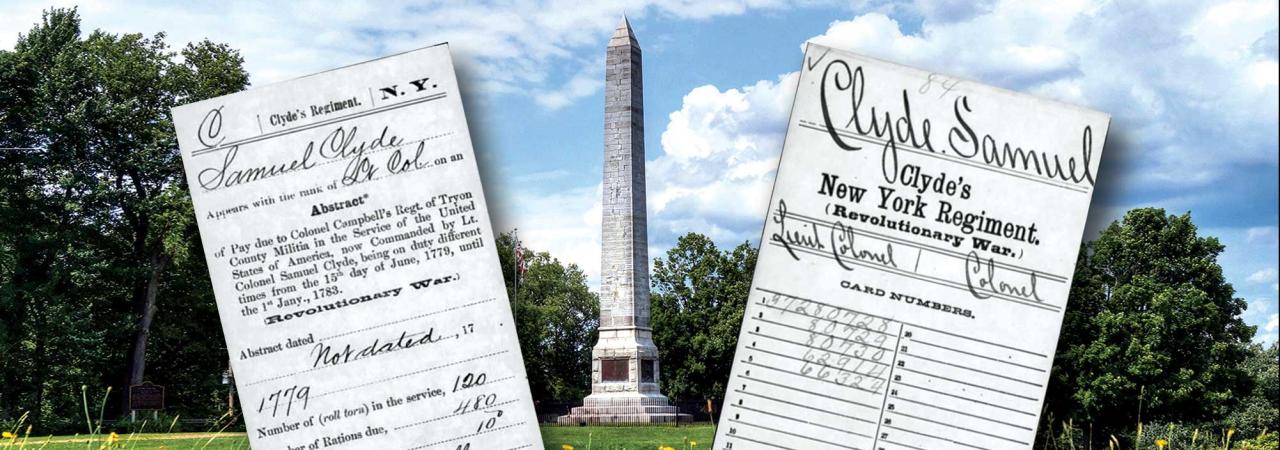 C | Clyde's Regiment. | N. Y.
Samuel Clyde
Appears with the rank of Lt Col on an
Abstract*
of Pay due to Colonel Campbell's Regt. of Tryon
County Militia in the Service of the United
States of America, now Commanded by Lt.
Colonel Samuel Clyde, being on duty different
times from the 15th day of June, 1779, until
the 1st Jany., 1783.
(Revolutionary War.)
Abstract dated Not dated, 17
1779
Number of (roll torn) in the service, 120
er of Rations due, 480
10
84
Clyde. Samuel
Clyde's
New York Regiment.
(Revolutionary War.)
Lieut Colonel | Colonel
CARD NUMBERS.
1 37280728
2 80729
3 80730
4 62914
5 66324
6
7
8
9
10
11
20
21
22
23
24
25
26
27